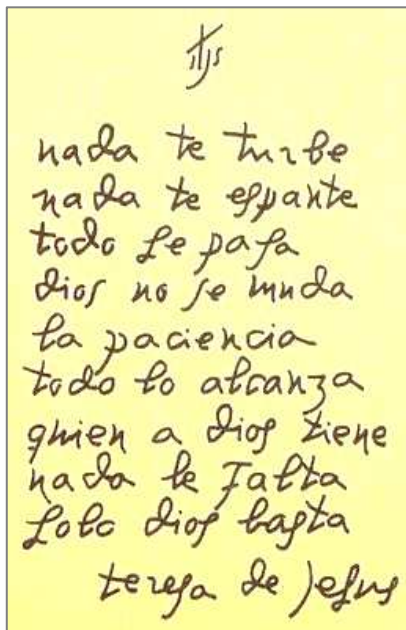 jhs
nada te turbe
nada te eſpante
todo ſe paſa
dioſ no ſe muda
la paciencia
todo lo alcanza
quien a dioſ tiene
nada le falta
ſolo dioſ baſta
tereſa de jeſus